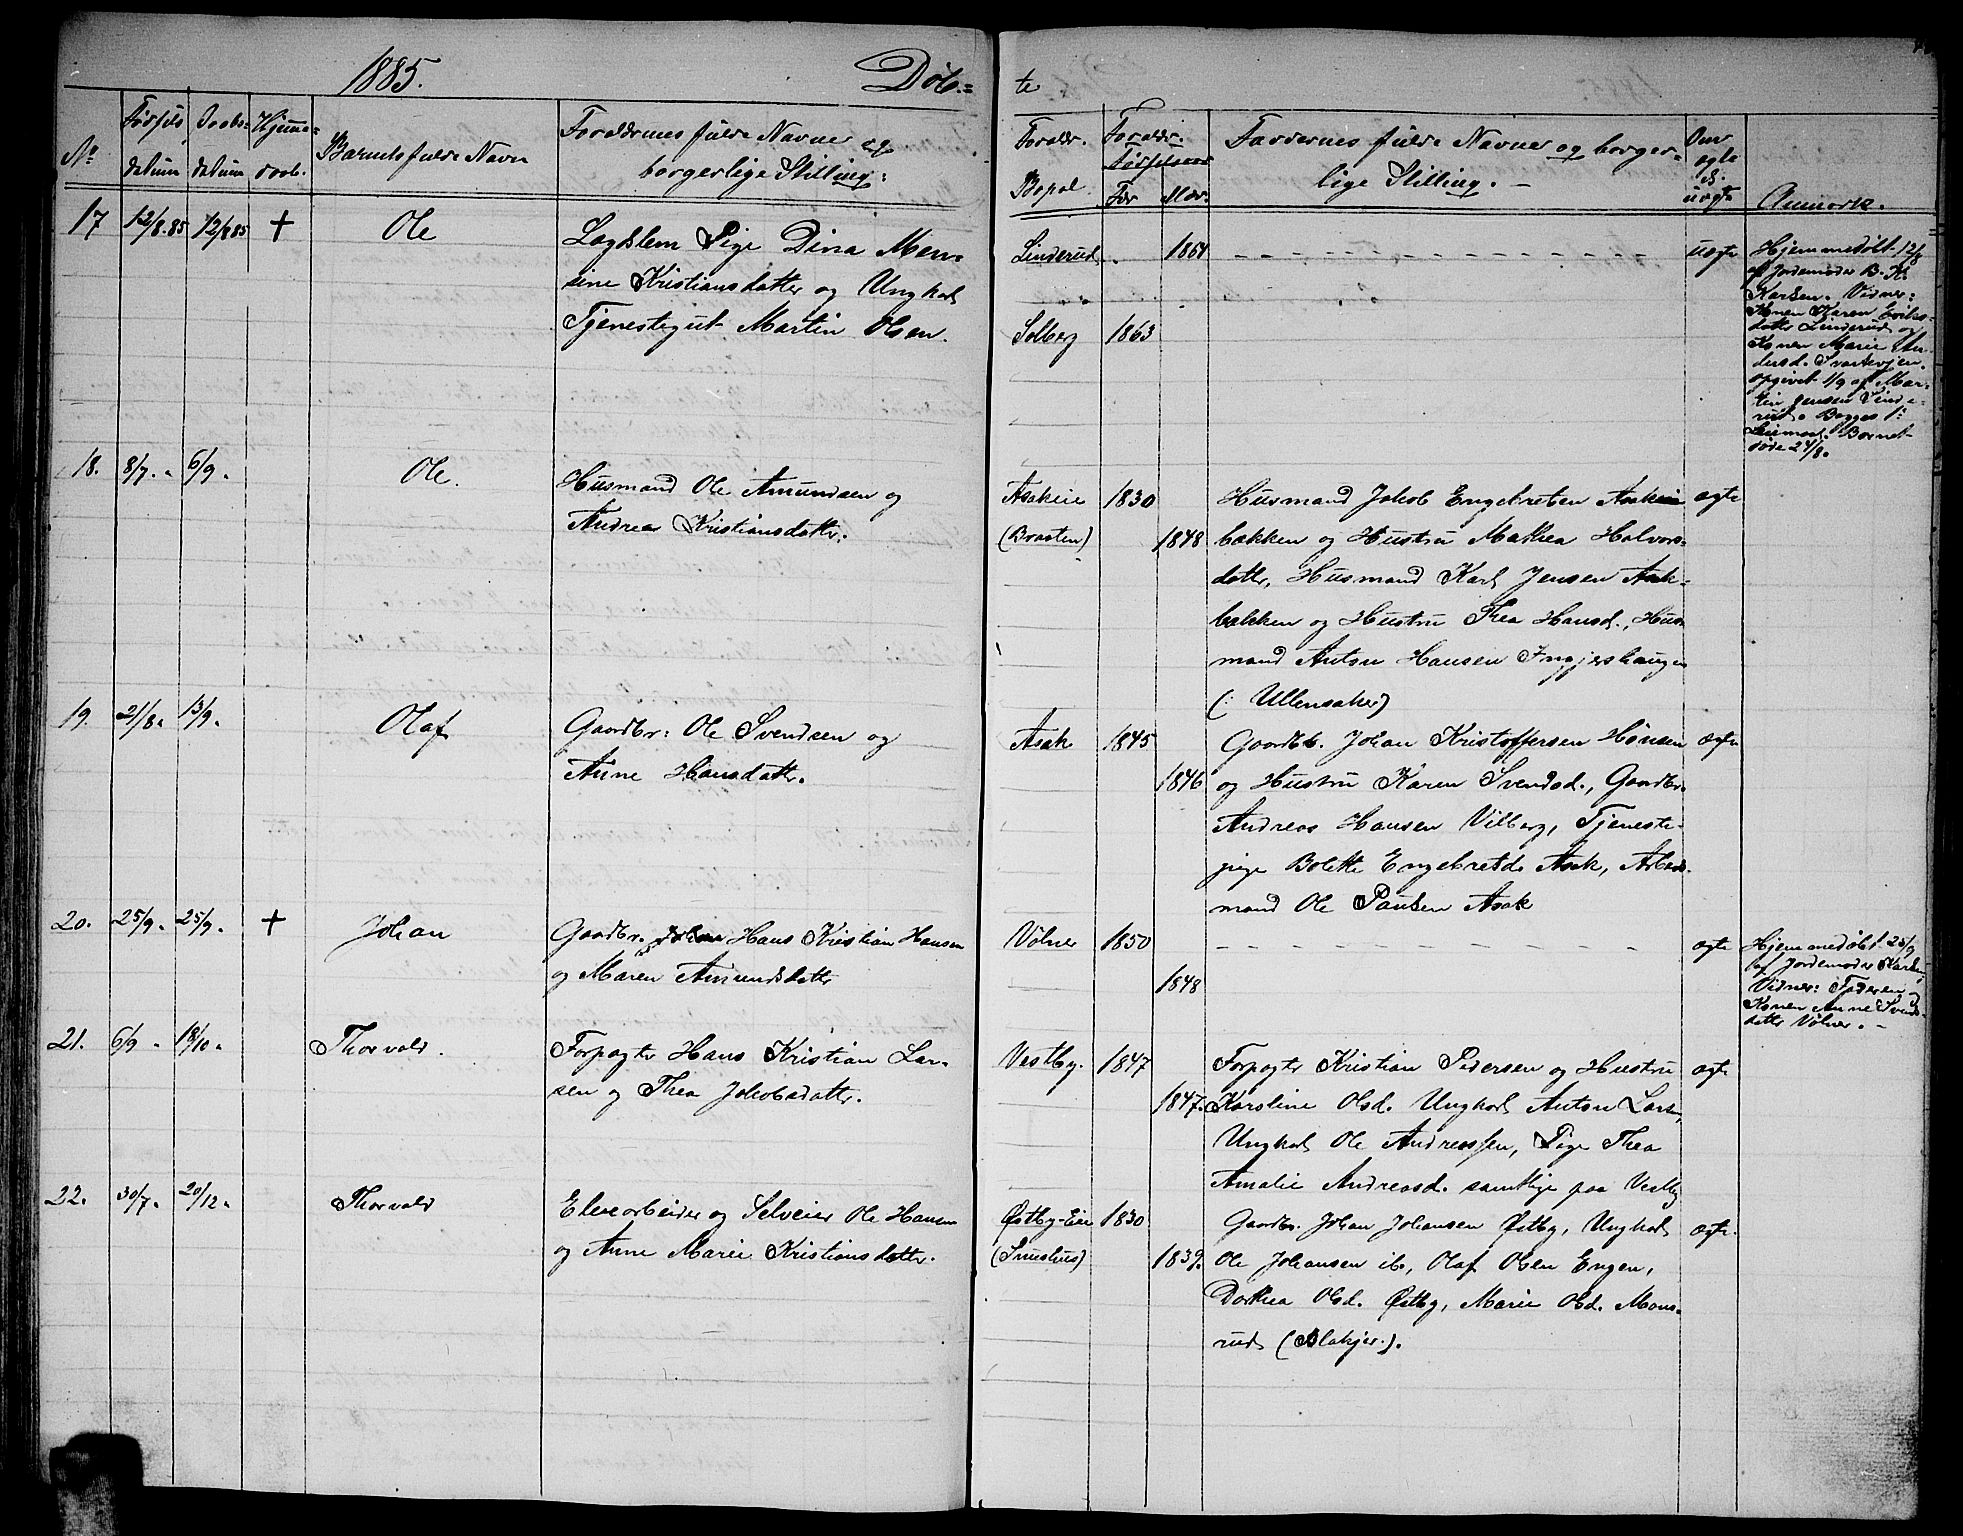 1885.
Döb-
te
No
Fødsels
datum
Daabs-
datum
Hjemme-
daab.
Barnets fulde Navn
Forældrenes fulde Navne og
borgerlige Stilling:
Foræld.
Bopæl
Forældr.
Fødselsaar
Far
Mor
Faddernes fulde Navne og borger-
lige Stilling. -
Om
ægte
el.
uægte
Anmærk.
17
12/8.85
12/8 85
+
Ole
Lagdslem Pige Dina Men-
sine Kristiansdatter og Ungkarl
Tjenestegut Martin Olsen.
Linderud
1864
Solberg
1863
uægte
Hjemmedøbt 12/8
af Jordemoder B. K.
Karlsen. Vidner:
Konen Karen Eriks-
datter Linderud og
Konen Marie An-
dersd. Svartevjen.
opgivet 1/9 af Mar-
tin Jensen Linde-
rud. Begges 1ᵉ
Leiermaal. Barnet
døde 24/8.
18.
8/7. "
6/9.
Ole.
Husmand Ole Amundsen og
Andrea Kristiansdatter.
Asakeie
(Braaten)
1830
1848
Husmand Jakob Engebretsen Asakeie
bækken og Hustru Mathea Halvors-
datter, Husmand Karl Jensen Asak-
bækken og Hustru Thea Hansd., Hus-
mand Anton Hansen Ingjershaugen
(: Ullensaker)
ægte
19.
21/8.
13/9.
Olaf
Gaardbr: Ole Svendsen og
Anne Hansdatter.
Asak
1845
1846
Gaardbr. Johan Kristoffersen Hønsen
og Hustru Karen Svendsd., Gaardbr.
Andreas Hansen Vilberg, Tjeneste-
pige Bolette Engebretsd. Asak, Arbeids-
mand Ole Paulsen Asak
ægte
20.
25/9.
25/9.
+
Johan
Gaardbr. Hans Kristian Hansen
og Maren Amundsdatter
Vølner
1850
1848
ægte
Hjemmedøbt 25/9
af Jordemoder Karlsen,
Vidner: Faderen,
Konen Anne Svends-
datter Vølner. -
21.
6/9 "
18/10.
Thorvald.
Forpagter Hans Kristian Lar-
sen og Thea Jakobsdatter.
Vestby.
1847
1847.
Forpagter Kristian Pedersen og Hustru
Karoline Olsd. Ungkarl Anton Larsen,
Ungkarl Ole Andreassen, Pige Thea
Amalie Andreasd. samtlige paa Vestby
ægte
22.
30/7.
20/12.
Thorvald
Elvearbeider og Selveier Ole Hansen
og Anne Marie Kristiansdatter.
Østby-Eie
(Snushus)
1830
1839.
Gaardbr. Johan Johansen Østby, Ungkarl
Ole Johansen ib, Olaf Olsen Engen,
Dorthea Olsd. Østby, Marie Olsd. Mons-
rud (Blakjer.).
ægte.